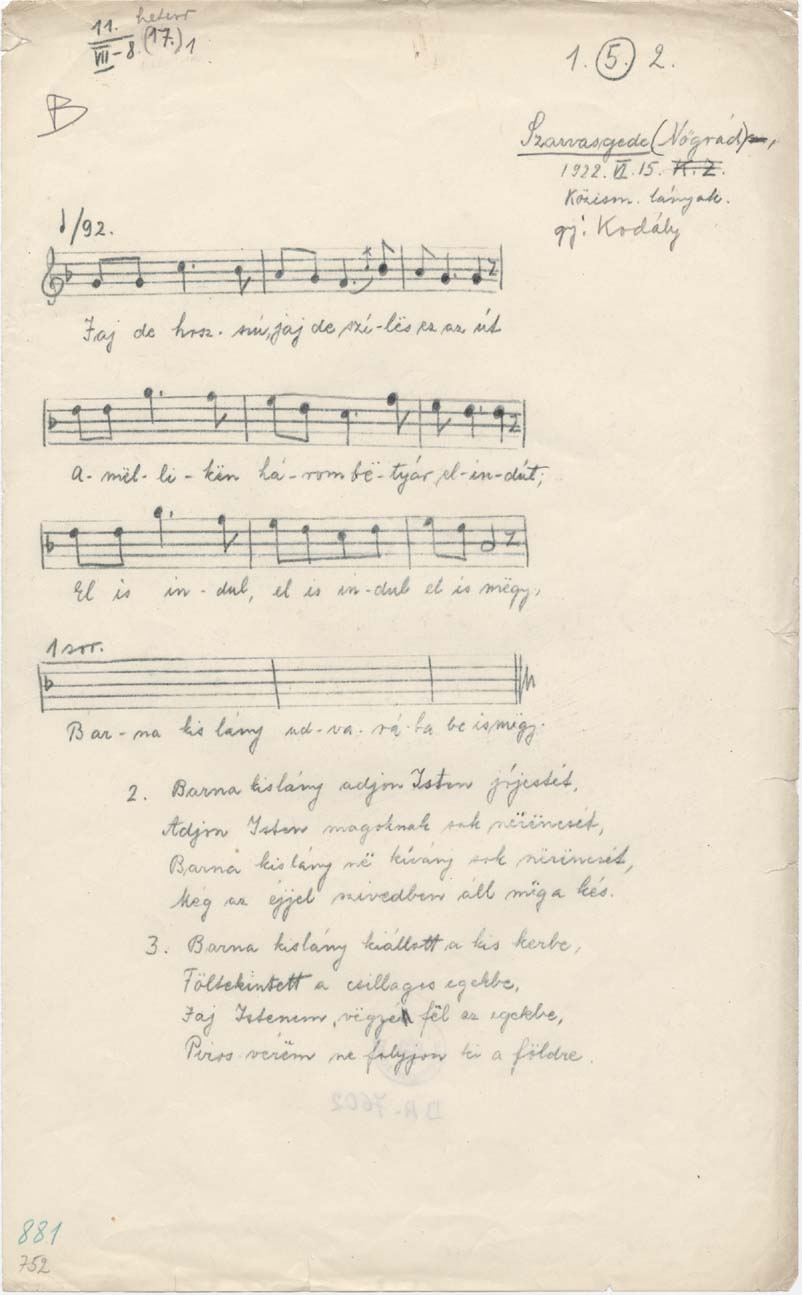 11. heterr
VII-8. (17.) 1
1. 5. 2.
B
Szarvasgede (Nógrád),
1922. VI. 15. K. Z.
Közism. lányok.
gj: Kodály
/92.
Jaj de hosz-szú, jaj de szé-lës ez az út
A-mël-li-kën há-rom bë-tyár el-in-dút;
El is in-dul, el is in-dul el is mëgy,
1 sor.
Bar-na kis lány ud-va-rá-ba be is mëgy.
2. Barna kislány adjon Isten jójestét,
Adjon Isten magoknak sok nërëncsét,
Barna kislány në kívánj sok nërëncsét,
Még az éjjel szivedben áll mëg a kés.
3. Barna kislány kiállott a kis kerbe,
Föltekintett a csillagos egekbe,
Jaj Istenem, végy fël az egekbe,
Piros vérëm ne folyjon ki a földre.
DR-7602
881
752